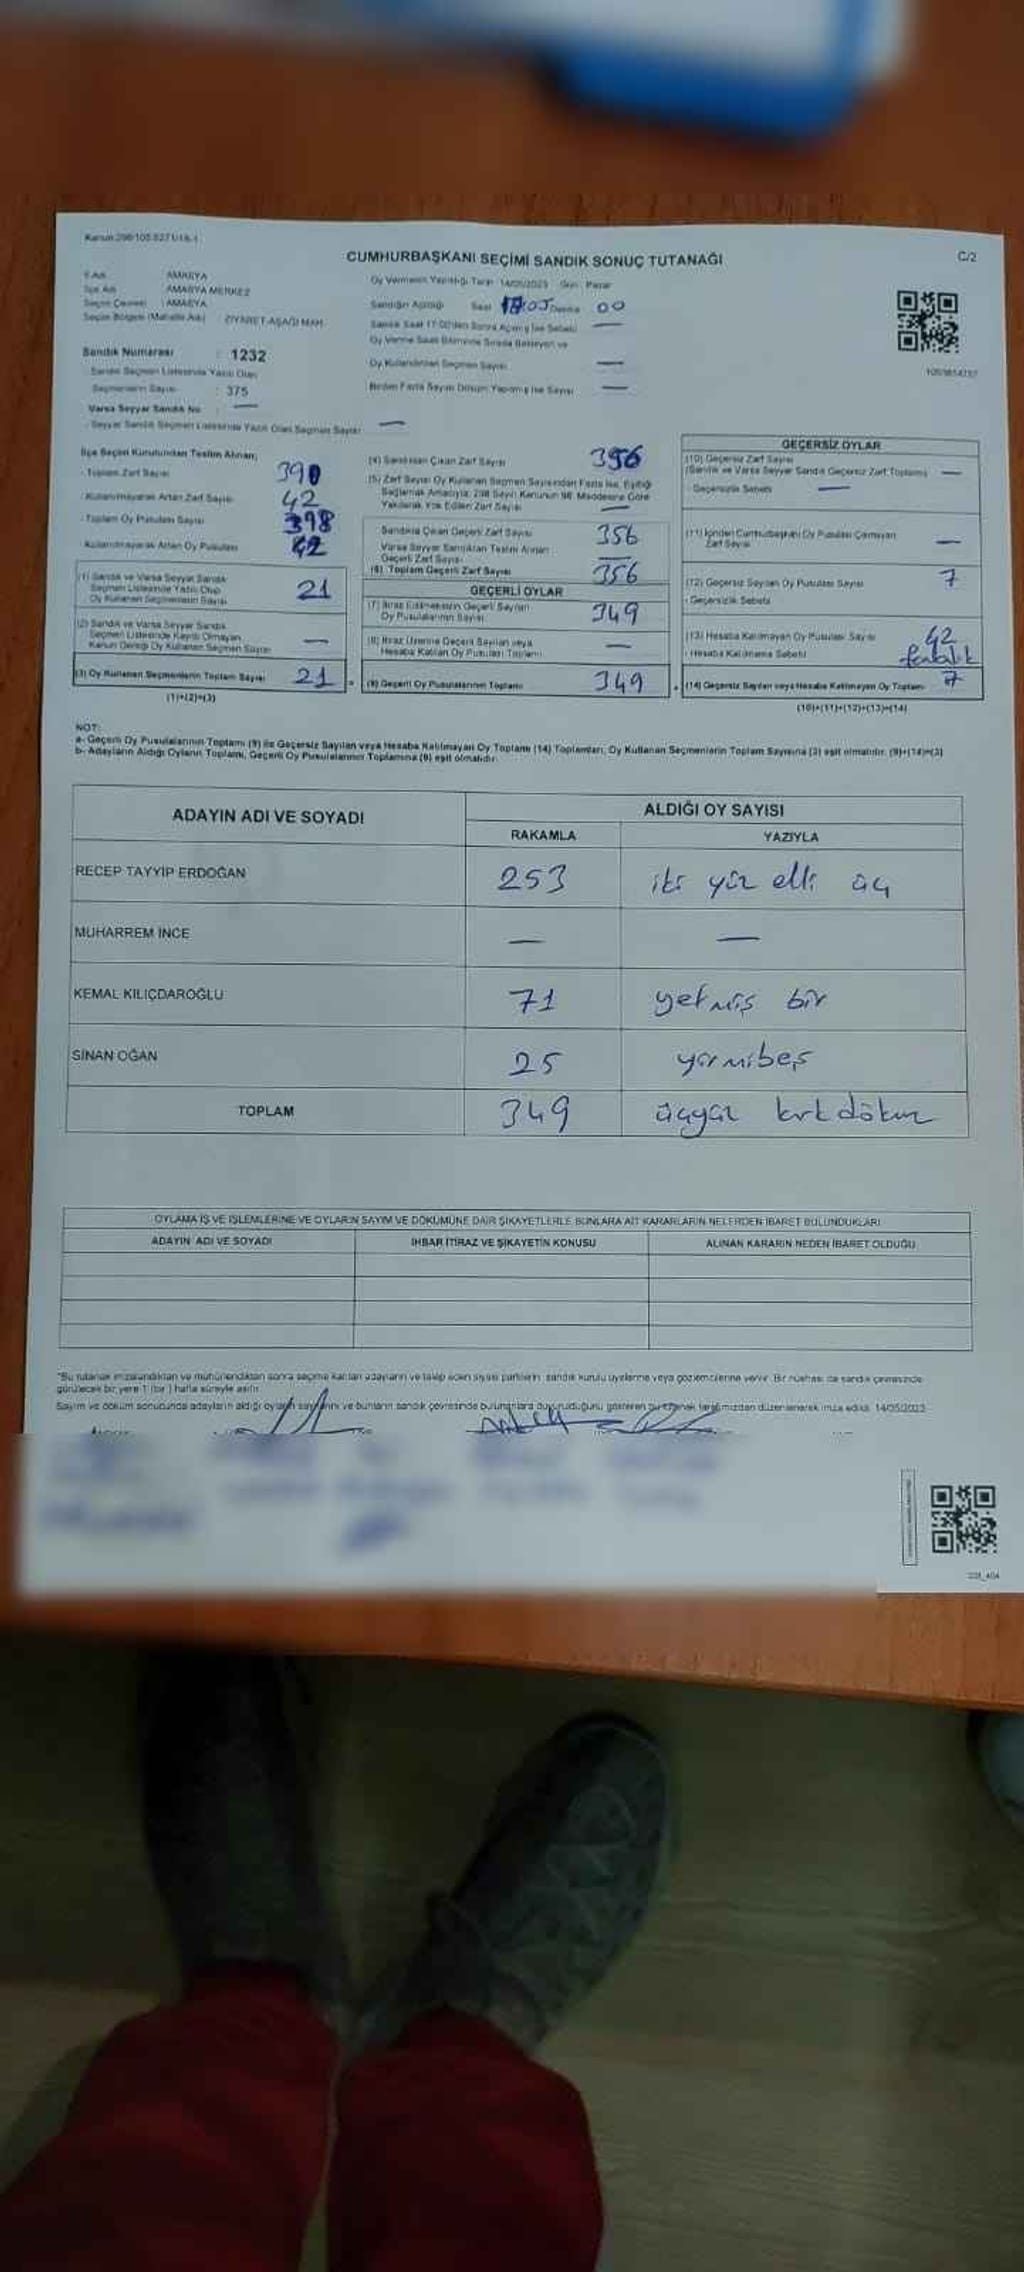 CUMHURBAŞKANI SEÇİMİ SANDIK SONUÇ TUTANAĞI
C/2
İl Adı AMASYA
İlçe Adı AMASYA MERKEZ
Seçim Çevresi : AMASYA
Seçim Bölgesi (Mahalle Adı) : ZİYARET-AŞAĞI MAH.
Sandık Numarası : 1232
Sandık Seçmen Listesinde Yazılı Olan
Seçmenlerin Sayısı : 375
Varsa Seyyar Sandık No : —
Seyyar Sandık Seçmen Listesinde Yazılı Olan Seçmen Sayısı —
Oy Vermenin Yapıldığı Tarih 14/05/2023 Gün Pazar
Sandığın Açıldığı Saat Dakika 00
Sandık Saat 17:00'den Sonra Açılmış İse Sebebi —
Oy Verme Saati Bitiminde Sırada Bekleyen ve
Oy Kullandırılan Seçmen Sayısı —
Birden Fazla Sayım Döküm Yapılmış İse Sayısı —
İlçe Seçim Kurulundan Teslim Alınan;
- Toplam Zarf Sayısı
- Kullanılmayarak Artan Zarf Sayısı 42
- Toplam Oy Pusulası Sayısı 398
- Kullanılmayarak Artan Oy Pusulası 42
(1) Sandık ve Varsa Seyyar Sandık
Seçmen Listesinde Yazılı Olup
Oy Kullanan Seçmenlerin Sayısı 21
(2) Sandık ve Varsa Seyyar Sandık
Seçmen Listesinde Kayıtlı Olmayan
Kanun Gereği Oy Kullanan Seçmen Sayısı —
(3) Oy Kullanan Seçmenlerin Toplam Sayısı 21
(1)+(2)=(3)
(4) Sandıktan Çıkan Zarf Sayısı 356
(5) Zarf Sayısı Oy Kullanan Seçmen Sayısından Fazla İse, Eşitliği
Sağlamak Amacıyla, 298 Sayılı Kanunun 98. Maddesine Göre
Yakılarak Yok Edilen Zarf Sayısı —
Sandıkta Çıkan Geçerli Zarf Sayısı 356
Varsa Seyyar Sandıktan Teslim Alınan
Geçerli Zarf Sayısı —
(6) Toplam Geçerli Zarf Sayısı 356
GEÇERLİ OYLAR
(7) İtiraz Edilmeksizin Geçerli Sayılan
Oy Pusulalarının Sayısı 349
(8) İtiraz Üzerine Geçerli Sayılan veya
Hesaba Katılan Oy Pusulası Toplamı —
(9) Geçerli Oy Pusulalarının Toplamı 349
GEÇERSİZ OYLAR
(10) Geçersiz Zarf Sayısı
(Sandık ve Varsa Seyyar Sandık Geçersiz Zarf Toplamı) —
- Geçersizlik Sebebi —
(11) İçinden Cumhurbaşkanı Oy Pusulası Çıkmayan
Zarf Sayısı —
(12) Geçersiz Sayılan Oy Pusulası Sayısı 7
- Geçersizlik Sebebi
(13) Hesaba Katılmayan Oy Pusulası Sayısı 42
- Hesaba Katılmama Sebebi fazlalık
(14) Geçersiz Sayılan veya Hesaba Katılmayan Oy Toplamı 7
(10)+(11)+(12)+(13)=(14)
NOT:
a- Geçerli Oy Pusulalarının Toplamı (9) ile Geçersiz Sayılan veya Hesaba Katılmayan Oy Toplamı (14) Toplamları, Oy Kullanan Seçmenlerin Toplam Sayısına (3) eşit olmalıdır. (9)+(14)=(3)
b- Adayların Aldığı Oyların Toplamı, Geçerli Oy Pusulalarının Toplamına (9) eşit olmalıdır.
ADAYIN ADI VE SOYADI
ALDIĞI OY SAYISI
RAKAMLA YAZIYLA
RECEP TAYYİP ERDOĞAN 253 iki yüz elli üç
MUHARREM İNCE — —
KEMAL KILIÇDAROĞLU 71 yetmiş bir
SİNAN OĞAN 25 yirmibeş
TOPLAM 349 üçyüz kırkdokuz
OYLAMA İŞ VE İŞLEMLERİNE VE OYLARIN SAYIM VE DÖKÜMÜNE DAİR ŞİKAYETLERLE BUNLARA AİT KARARLARIN NELERDEN İBARET BULUNDUKLARI
ADAYIN ADI VE SOYADI İHBAR İTİRAZ VE ŞİKAYETİN KONUSU ALINAN KARARIN NEDEN İBARET OLDUĞU
*Bu tutanak imzalandıktan ve mühürlendikten sonra seçime katılan adayların ve talep eden siyasi partilerin sandık kurulu üyelerine veya gözlemcilerine verilir. Bir nüshası da sandık çevresinde
görülecek bir yere 1 (bir) hafta süreyle asılır.
Sayım ve döküm sonucunda adayların aldığı oyların sayılarını ve bunların sandık çevresinde bulunanlara duyurulduğunu gösteren bu tutanak tarafımızdan düzenlenerek imza edildi. 14/05/2023